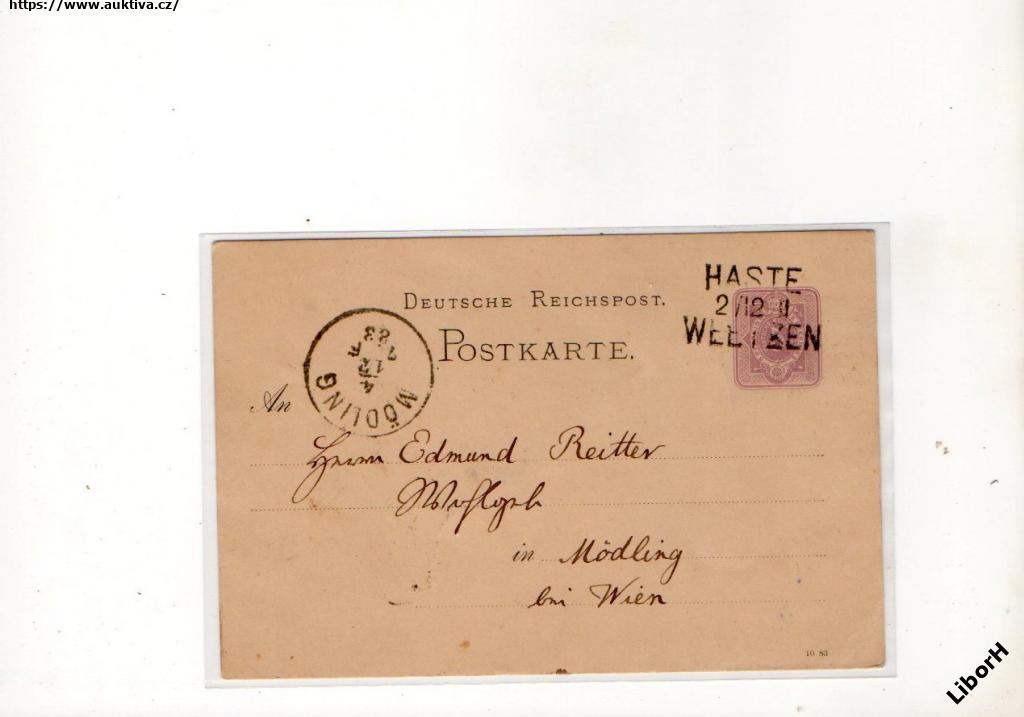 https://www.auktiva.cz/
HASTE
2/12 II
WEETZEN
DEUTSCHE REICHSPOST.
POSTKARTE.
MÖDLING
An
Herrn Edmund Reitter
Wohlgeb
in Mödling
bei Wien
10 83
LiborH